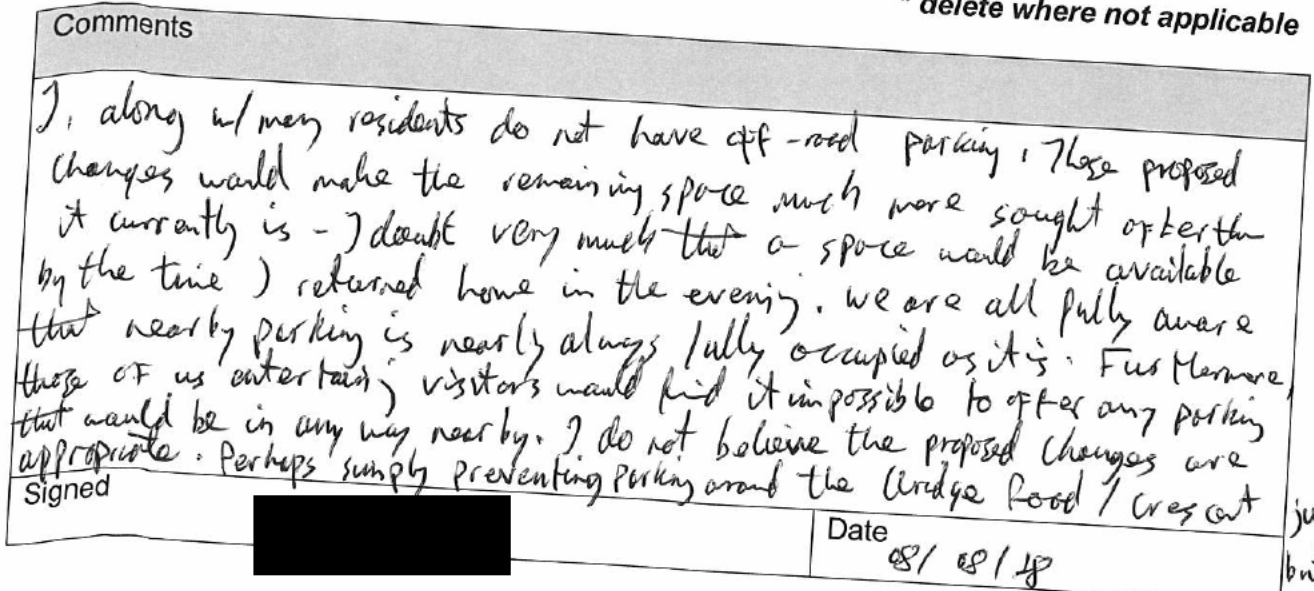 * delete where not applicable
Comments
I, along w/ many residents do not have off-road parking. These proposed
changes would make the remaining space much more sought after than
it currently is - I doubt very much that a space would be available
by the time I returned home in the evening. We are all fully aware
that nearby parking is nearly always fully occupied as it is. Furthermore,
those of us entertaining visitors would find it impossible to offer any parking
that would be in any way nearby. I do not believe the proposed changes are
appropriate. Perhaps simply preventing parking around the Road / Crescent
Signed
Date
08/08/18